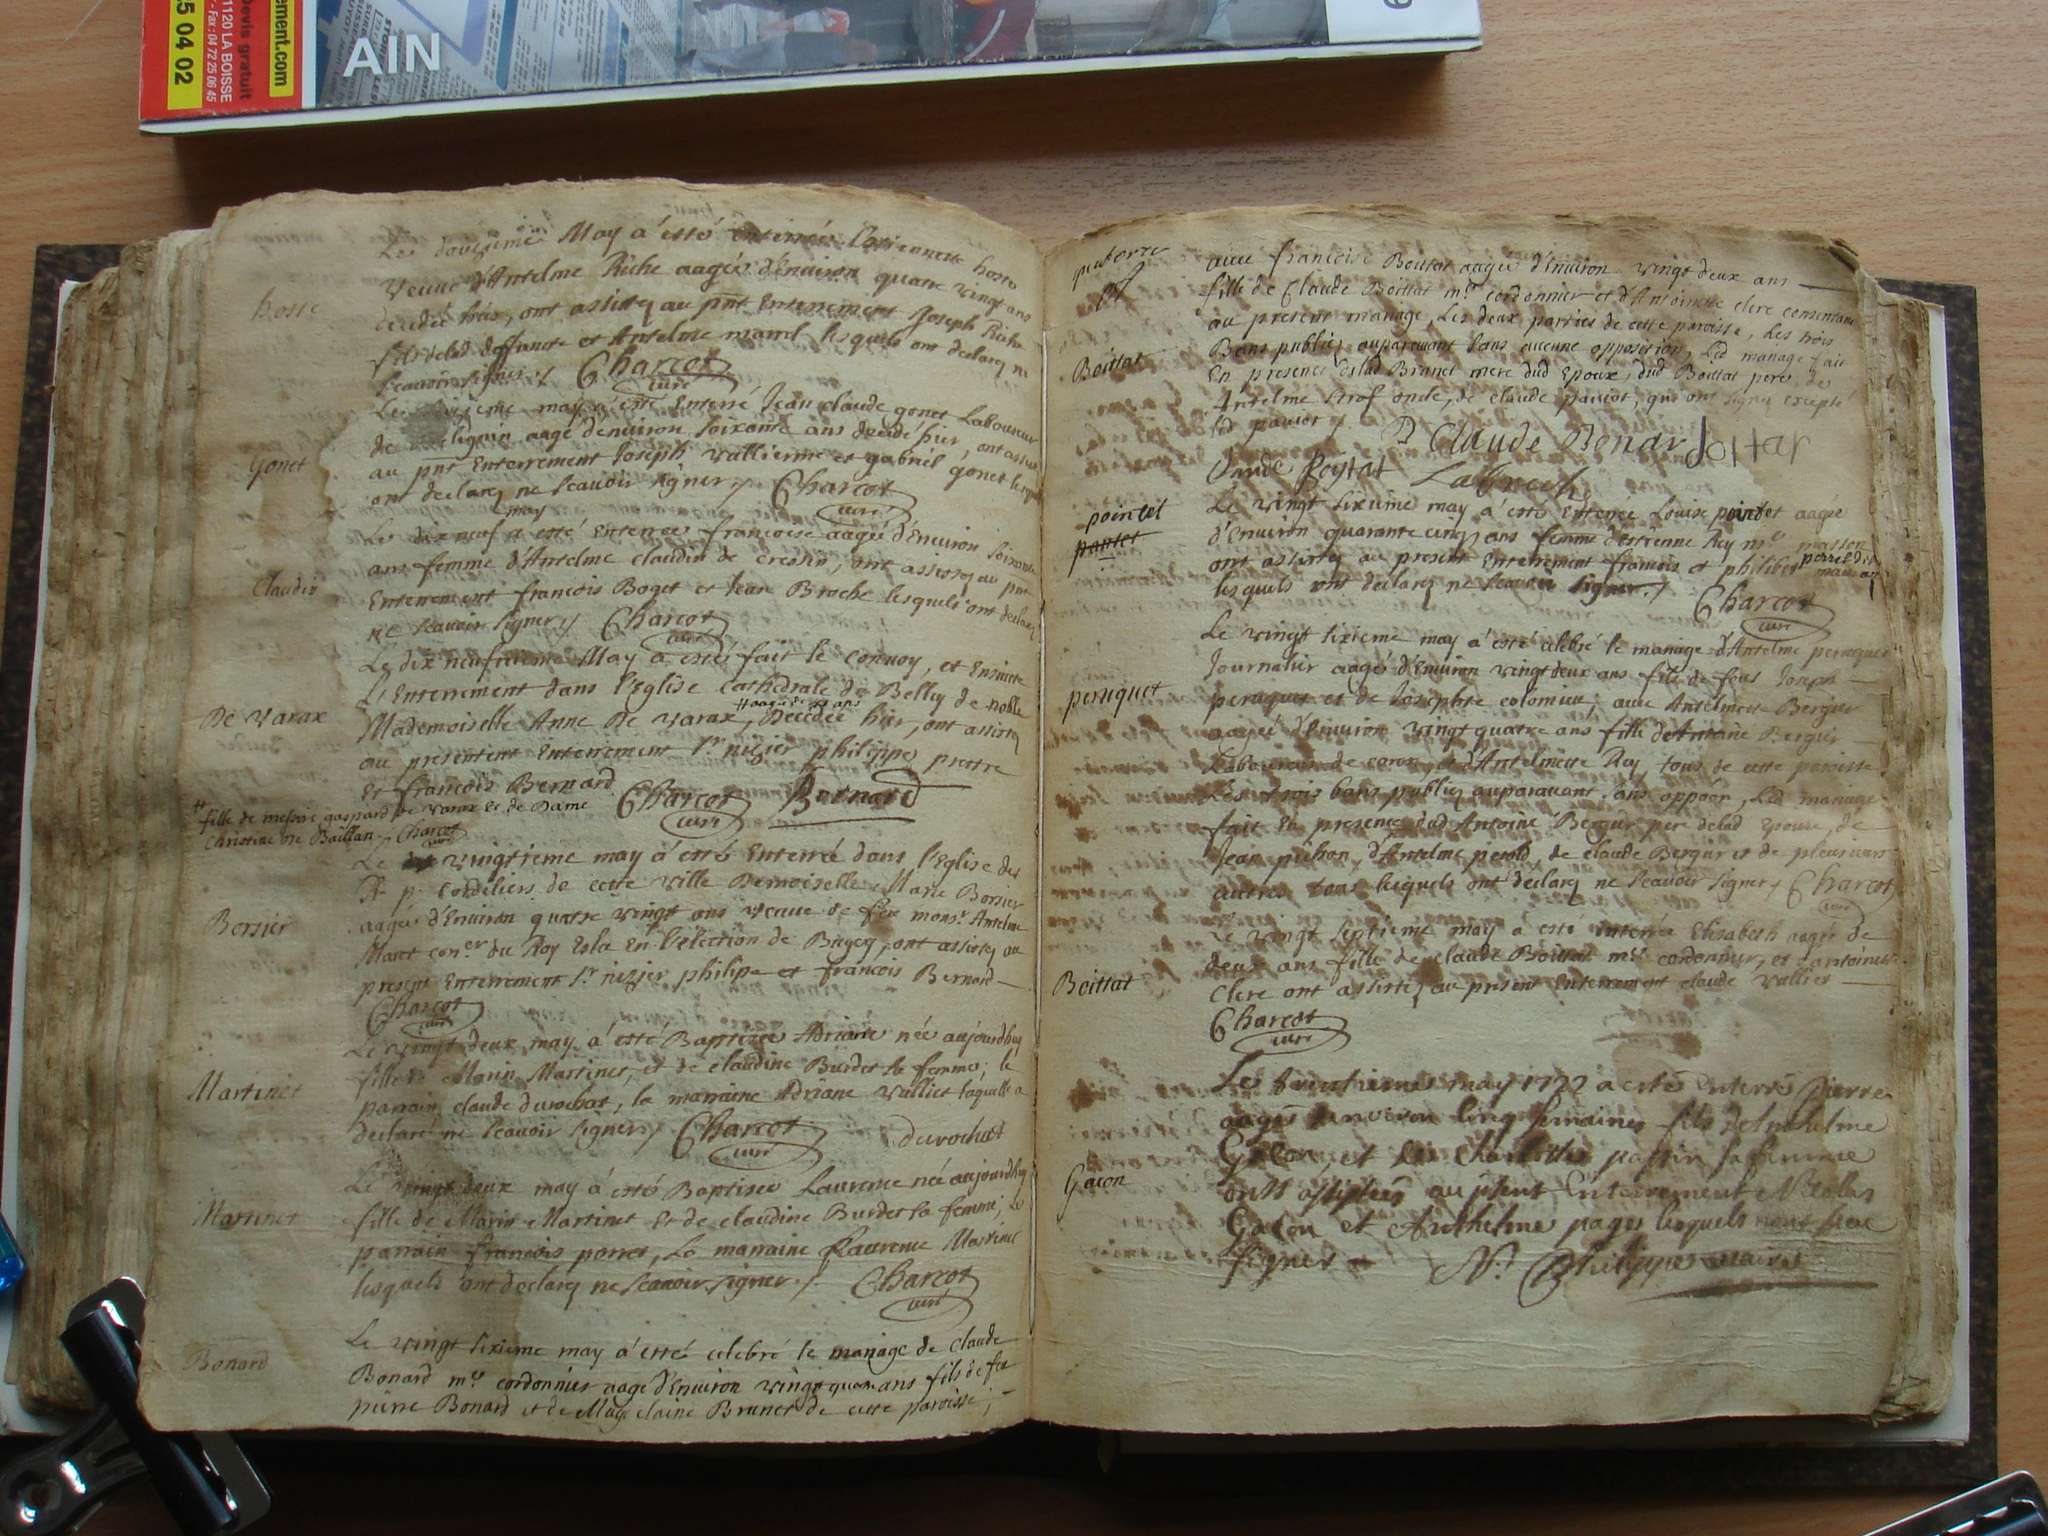 ement.com
Devis gratuit
1120 LA BOISSE
- Fax : 04 72 25 06 45
5 04 02
AIN
Le May a esté enterrée hoste
veuve d'Antelme Riche aagée d'Environ quatre vingt ans
decedée hier, ont assistez au pnt Enterrement Joseph Riche
fils delad deffuncte et Antelme lesquels ont declarez ne
scavoir signer ./. Charcot
curé
hoste
Le may a esté Enterré Jean claude gonet Laboureur
de aagé denviron soixante ans decedé hier, ont assistez
au pnt Enterrement Joseph vallierme et gabriel gonet lesquels
ont declarez ne scavoir signer ./. Charcot
curé
Gonet
may
Le dix neuf a esté Enterrée francoise aagée d'Environ soixante
ans femme d'Antelme claudin de cressin, ont assistez au pnt
Enterrement francois Boget et Jean Broche lesquels ont declarez
ne scavoir signer ./. Charcot
curé
Claudin
Le dix neufvieme May a esté fait le convoy, et Ensuitte
L'Enterrement dans l'Eglise cathedrale de Belley de noble
Mademoiselle Anne De varax, Decedée hier, ont assistez
au presentent Enterrement Sr nizier philippe prestre
Et francois Bernard Charcot Bernard
curé
De varax
# fille de messire gaspard De varax et de Dame
christine De Baillan ./. Charcot
curé
Le vingtieme may a esté Enterrée dans l'Eglise des
R. p. Cordeliers de cette ville Demoiselle Marie Borsier
aagée d'Environ quatre vingt ans veuve de feu monsr Antelme
Maret coner du Roy Esla En l'election de Bugey, ont assistez au
present Enterrement Sr nizier philipe et francois Bernard
Charcot
curé
Borsier
Le vingt deux may a esté Baptisée Adriane née aujourdhuy
fille de Marin Martinet, et de claudine Burdet sa femme; le
parrain claude durochat, la marraine Adriane Vulliet laquelle a
declaré ne scavoir signer ./. Charcot durochat
curé
Martinet
Le vingt deux may a esté Baptisée Laurence née aujourdhuy
fille de Marin Martinet Et de claudine Burdet sa femme, Le
parrain francois porret, La marraine Laurence Martinet
lesquels ont declarez ne scavoir signer ./. Charcot
curé
Martinet
Le vingt sixieme may a esté celebré le mariage de Claude
Bonard mre cordonnier aage d'Environ vingt quatre ans fils de feu
pierre Bonard et de Magdelaine Brunet de cette paroisse;
Bonard
avec francoise Boittat aagée d'Environ vingt deux ans
fille de Claude Boittat mre cordonnier et d'Antoinette clerc consentans
au present mariage, Les deux parties de cette paroisse, Les trois
Bans publiez auparavant sans aucune opposition, Led mariage fait
En presence delad Brunet mere dud Epoux, dud Boittat pere, de
Antelme oncle, de claude paviot, qui ont signez excepté
led paviot ./. Claude Bonar
Boittat
Le vingt sixieme may a esté Enterrée Louise pointet aagée
d'Environ quarante cinq ans femme d'estienne Rey mre masson
ont assistez au present Enterrement francois et philibert
lesquels ont declarez ne scavoir signer ./. Charcot
curé
pointet
pantet
Le vingt sixieme may a esté celebré le mariage d'Antelme peruquet
Journalier aagé d'Environ vingt deux ans fils de feus Joseph
peruquet et de Josephte colomieu; avec Antelmette Bergier
aagée d'Environ vingt quatre ans fille de Antoine Bergier
Laboureur de coron, et d'Antelmette Rey, tous de cette paroisse
Les trois bans publiez auparavant sans oppoon, Led mariage
fait En presence dud Antoine Bergier pere delad Epouse, de
Jean pichon, d'Antelme de claude Bergier et de plusieurs
autres tous lesquels ont declarez ne scavoir signer ./. Charcot
curé
peruquet
Le vingt septieme may a esté enterrée Elisabeth aagée de
deux ans fille de claude Boittat mre cordonnier, et d'antoinette
Clerc ont assistez au present Enterrement claude vallier
Charcot
curé
Boittat
Le trentiemes may 1722 a esté enterré Pierre
aagés denviron cinq semaines fils d'Anthelme
Gacon, et de Charlotte sa femme
ont assistées au pnt Enterrement Nicollas
Gacon et Anthelme pages lesquels nont sceu
signer N. Philippe vicaire
Gacon